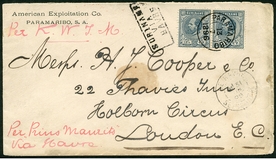 American Exploitation Co.
PARAMARIBO, S. A.
Per K. W. I. M
SURINAME
PARAMARIBO
1896
Messrs H. J. Cooper & Co.
22 Thavies Inn
Holborn Circus
London E. C.
Per Prins Maurits
Via Havre